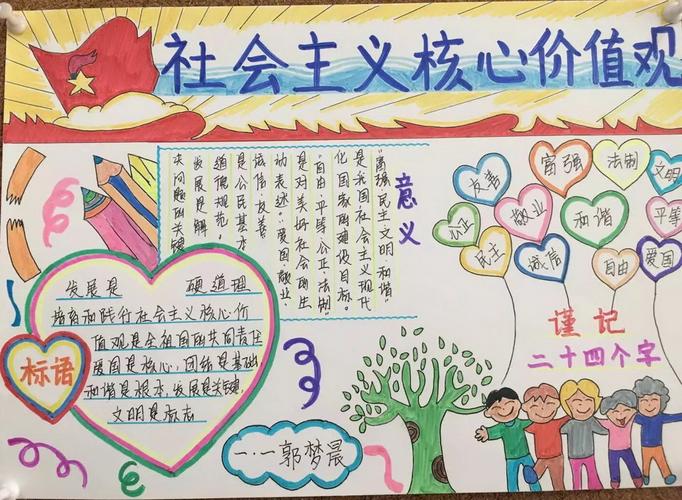 社会主义核心价值观
意义
“富强、民主、文明、和谐
是我国社会主义现代
化国家的建设目标。
“自由、平等、公正、法制
是对美好社会的生
动表述：爱国、敬业
诚信、友善
是公民基本
道德规范，
发展是解
决问题的关键
友善
富强
法制
文明
公正
敬业
和谐
平等
民主
诚信
自由
爱国
谨记
二十四个字
标语
发展是 硬道理
培育和践行社会主义核心价
值观是全祖国的共同责任
爱国是核心，团结是基础，
和谐是根本，发展是关键，
文明是标志
一.一郭梦晨